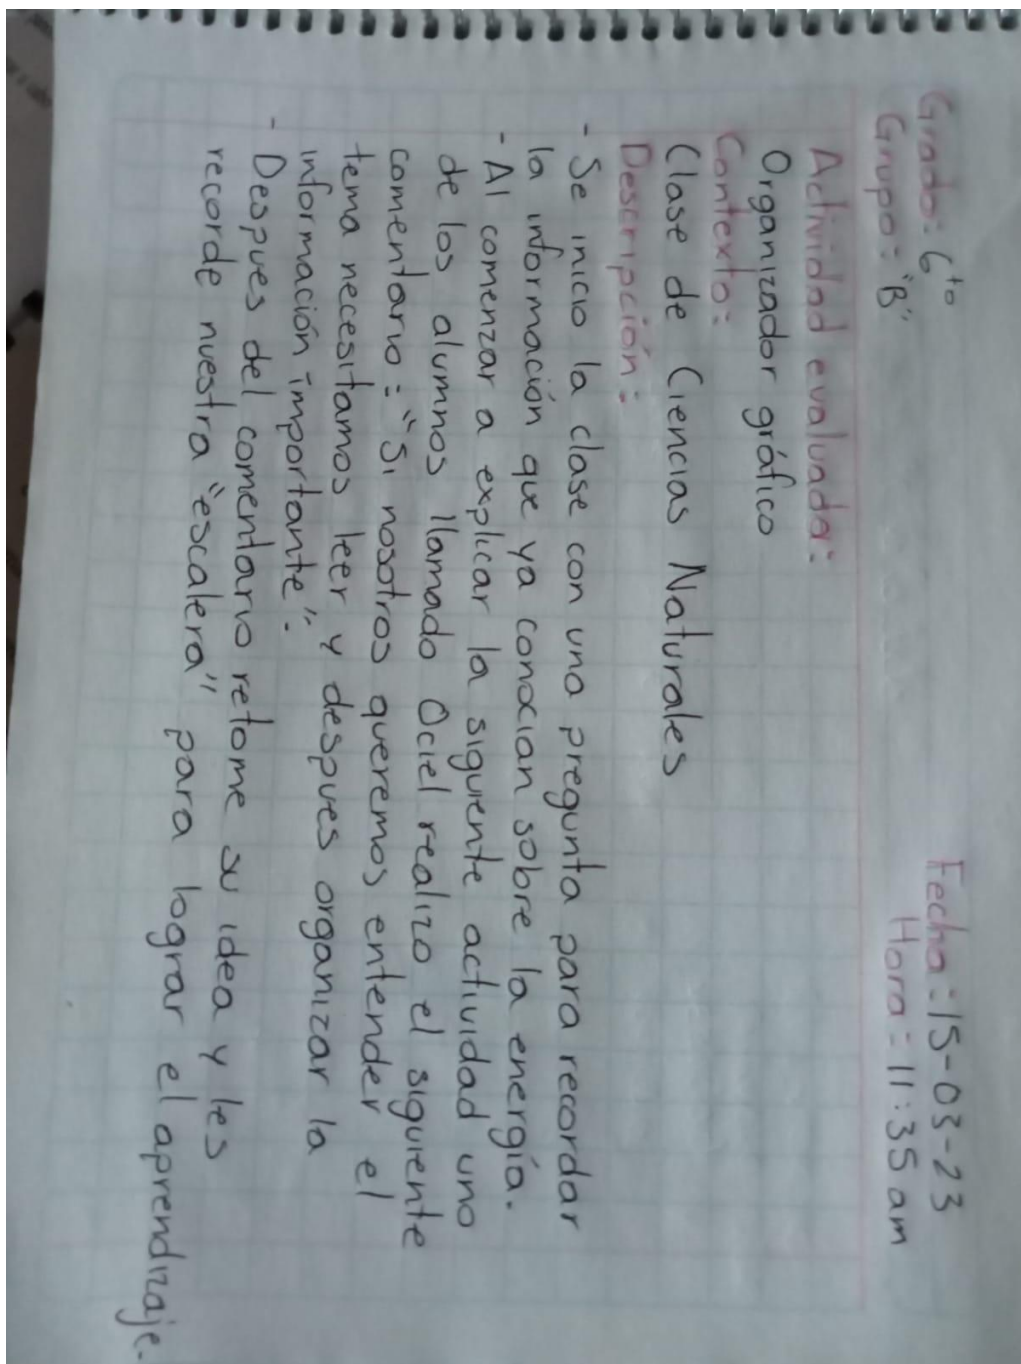 Grado: 6to
Grupo: "B"
Fecha: 15-03-23
Hora: 11:35 am
Actividad evaluada:
Organizador gráfico
Contexto:
Clase de Ciencias Naturales
Descripción:
- Se inicio la clase con una pregunta para recordar
la información que ya conocian sobre la energía.
- Al comenzar a explicar la siguiente actividad uno
de los alumnos llamado Ociel realizo el siguiente
comentario: "Si nosotros queremos entender el
tema necesitamos leer y despues organizar la
información importante".
- Despues del comentario retome su idea y les
recorde nuestra "escalera" para lograr el aprendizaje.